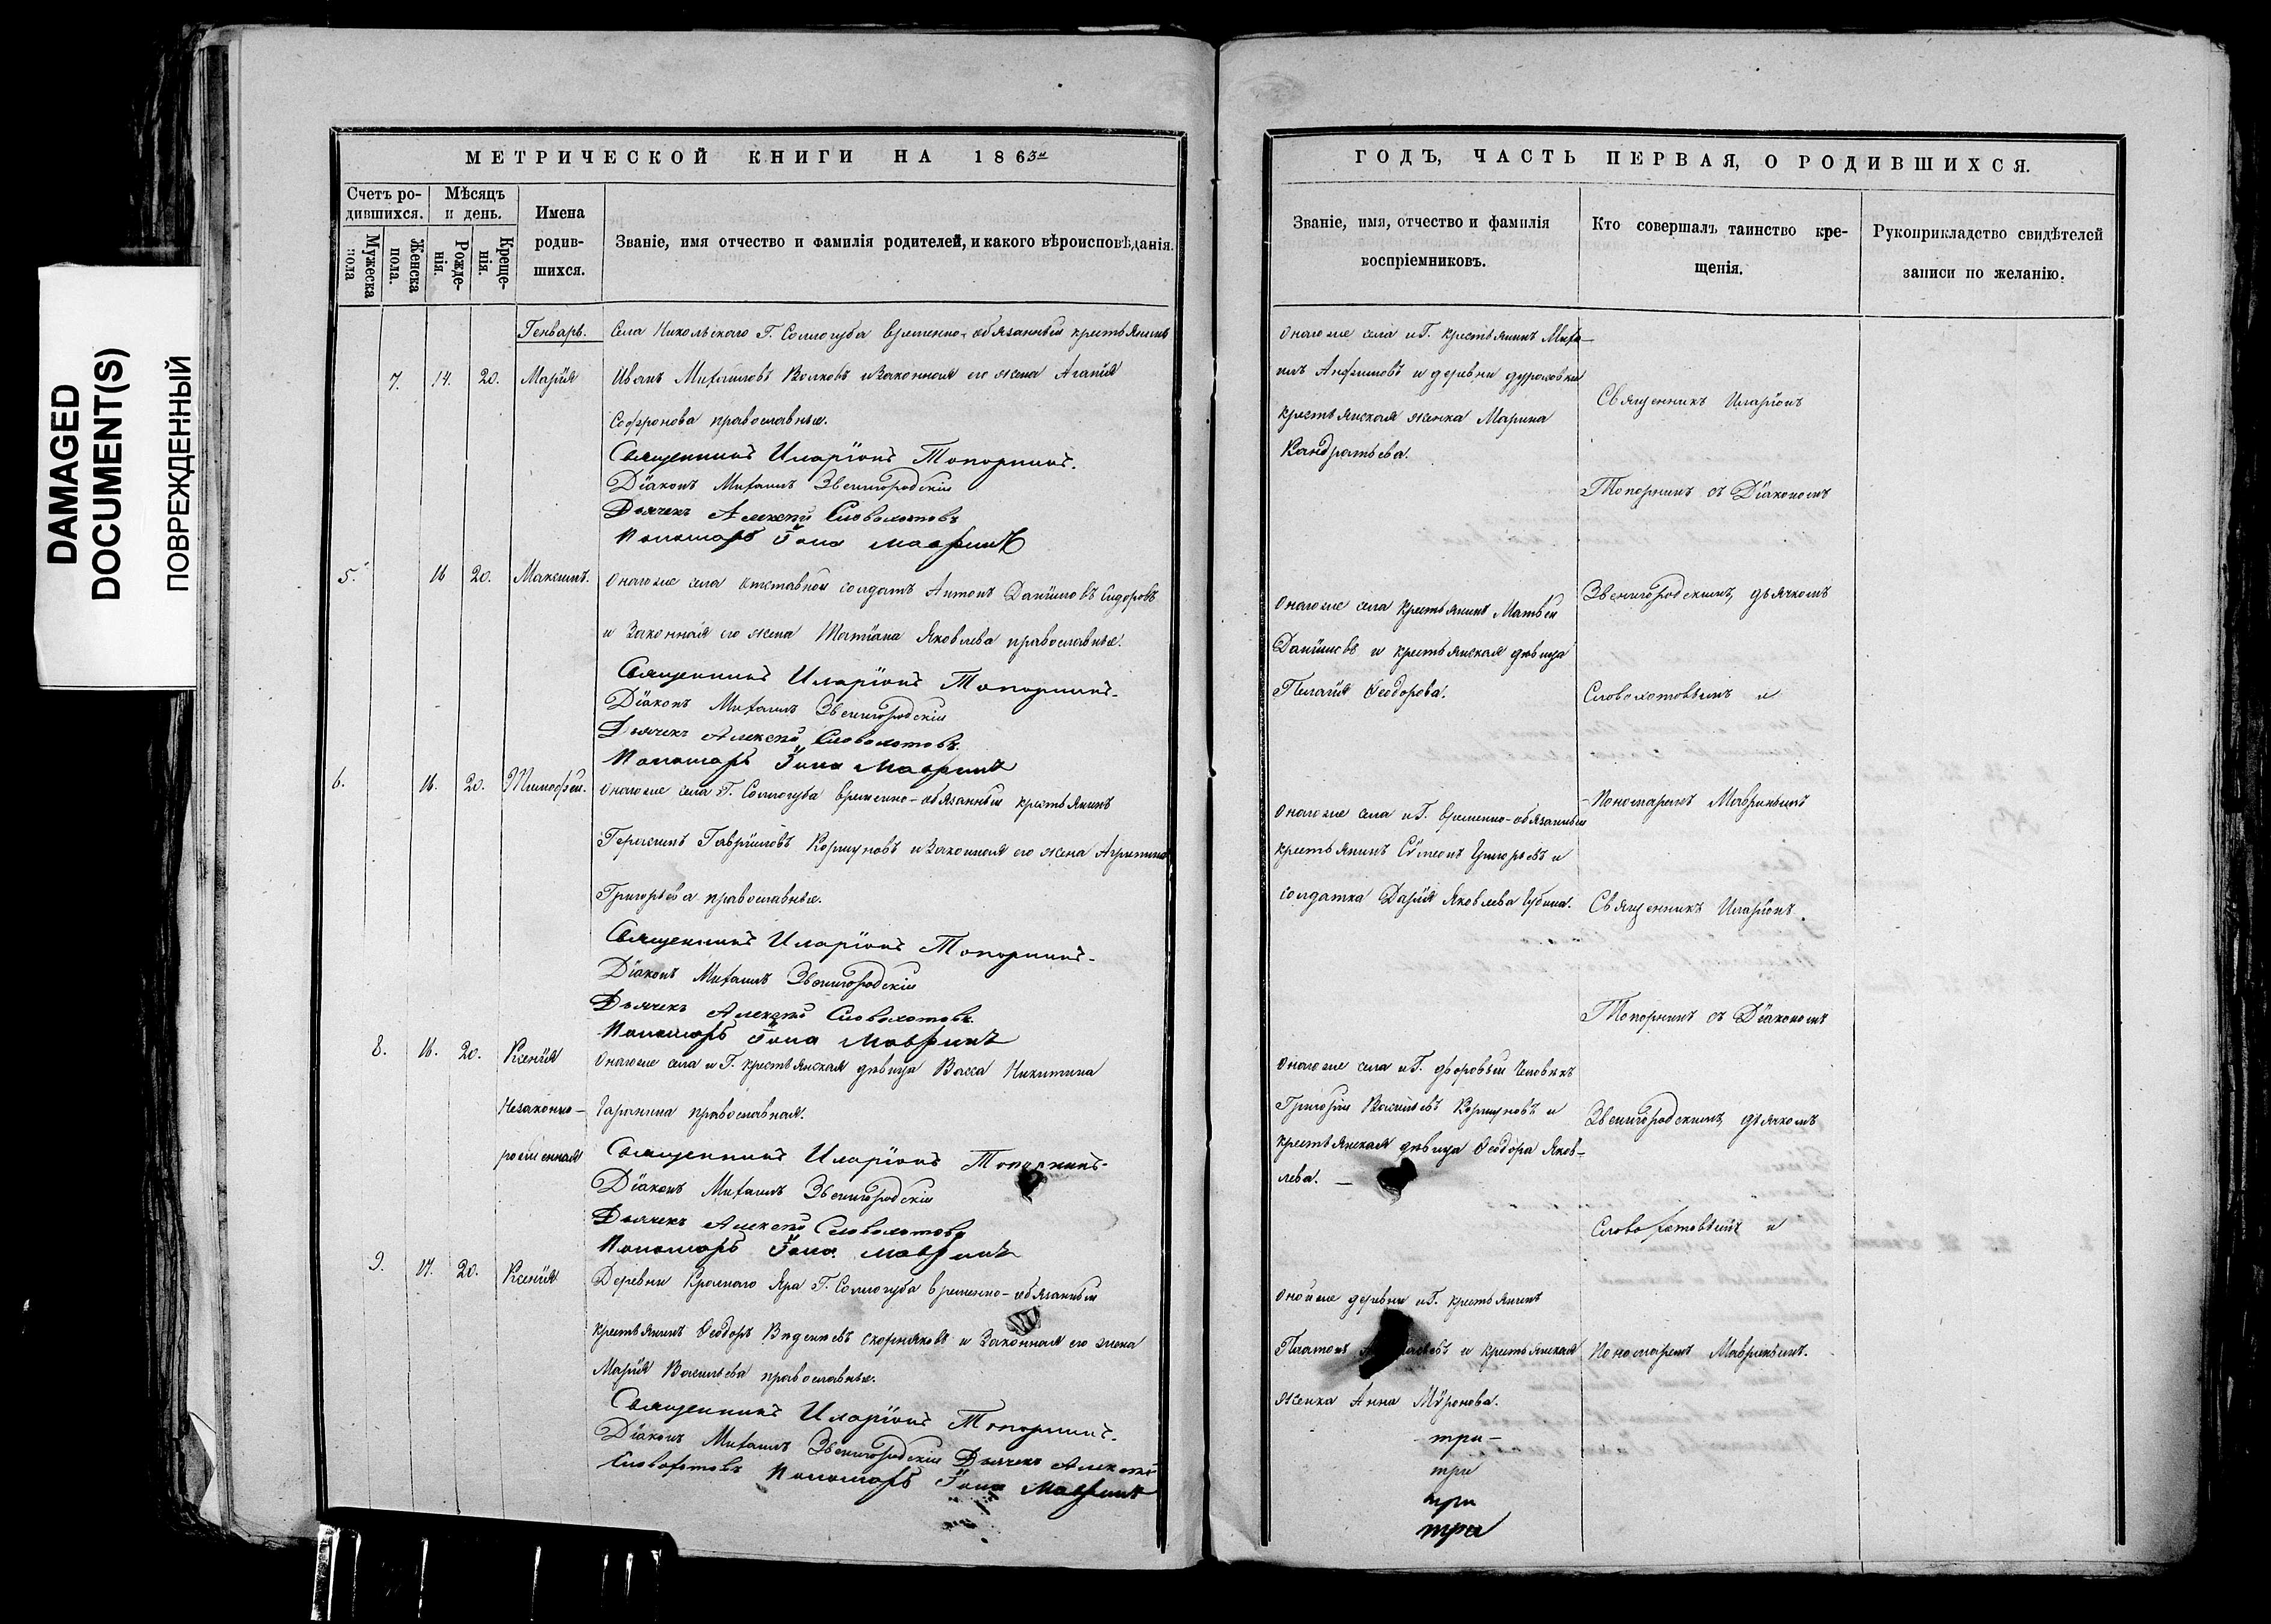 DAMAGED
DOCUMENT(S)
ПОВРЕЖДЕННЫЙ
МЕТРИЧЕСКОЙ КНИГИ НА 1863й
Счетъ ро-
дившихся.
Мѣсяцъ
и день.
Имена
родив-
шихся.
Мужеска
пола
Женска
пола.
Рожде-
нія.
Креще-
нія.
Званіе, имя отчество и фамилія родителей, и какого вѣроисповѣданія.
Генварь.
Села Никольскаго Г. Соллогуба временно-обязанный крестьянинъ
7. 14. 20. Марія Иванъ Михайловъ Волковъ и законная его жена Агапія
Софронова православные.
Священникъ Иларіонъ Топорнинъ.
Діаконъ Михаилъ Звенигородскій
Дьячекъ Алексѣй Словохотовъ
Пономарь Іона Мавринъ
5. 16 20. Максимъ. Оного же села отставной солдатъ Антонъ Даниловъ Сидоровъ
и законная его жена Татіана Яковлева православные.
Священникъ Иларіонъ Топорнинъ.
Діаконъ Михаилъ Звенигородскій
Дьячекъ Алексѣй Словохотовъ.
Пономарь Іона Мавринъ
6. 16. 20. Тимофей. Оного же села Г. Соллогуба временно-обязанный крестьянинъ
Герасимъ Гавріиловъ Коршуновъ и законная его жена Агрипина
Григорьева православные.
Священникъ Иларіонъ Топорнинъ.
Діаконъ Михаилъ Звенигородскій
Дьячекъ Алексѣй Словохотовъ.
Пономарь Іона Мавринъ
8. 16. 20. Ксенія Оного же села и Г. крестьянская дѣвица Васса Никитина
Незаконно- Гаранина православная.
рожденная Священникъ Иларіонъ Топорнинъ.
Діаконъ Михаилъ Звенигородскій
Дьячекъ Алексѣй Словохотовъ
Пономарь Іона Мавринъ
9. 17. 20. Ксенія Деревни Краснаго Яра Г. Соллогуба временно-обязанный
крестьянинъ Ѳеодоръ Скорняковъ и законная его жена
Марія Васильева православные.
Священникъ Иларіонъ Топорнинъ.
Діаконъ Михаилъ Звенигородскій Дьячекъ Алексѣй
Словохотовъ Пономарь Іона Мавринъ
ГОДЪ, ЧАСТЬ ПЕРВАЯ, О РОДИВШИХСЯ.
Званіе, имя, отчество и фамилія
воспріемниковъ.
Кто совершалъ таинство кре-
щенія.
Рукоприкладство свидѣтелей
записи по желанію.
Оного же села и Г. крестьянинъ Миха-
илъ и деревни
крестьянская женка Марина
Кандратьева.
Оного же села крестьянинъ Матвей
Даниловъ и крестьянская дѣвица
Пелагія Ѳеодорова.
Оного же села и Г. временно-обязанный
крестьянинъ Сѵмеонъ Григорьевъ и
солдатка Дарія Яковлева Губина.
Оного же села и Г. дворовый человѣкъ
Григорій Васильевъ Коршуновъ и
крестьянская дѣвица Ѳеодора Яков-
лева.
Оной же деревни и Г. крестьянинъ
Платонъ и крестьянская
женка Анна Мѵронова.
три-
три
три
три
Священникъ Иларіонъ
Топорнинъ съ Діакономъ
Звенигородскимъ, дьячкомъ
Словохотовымъ и
-Пономаремъ Мавринымъ
Священникъ Иларіонъ
Топорнинъ съ Діакономъ
Звенигородскимъ, дьячкомъ
Словохотовымъ и
Пономаремъ Мавринымъ.